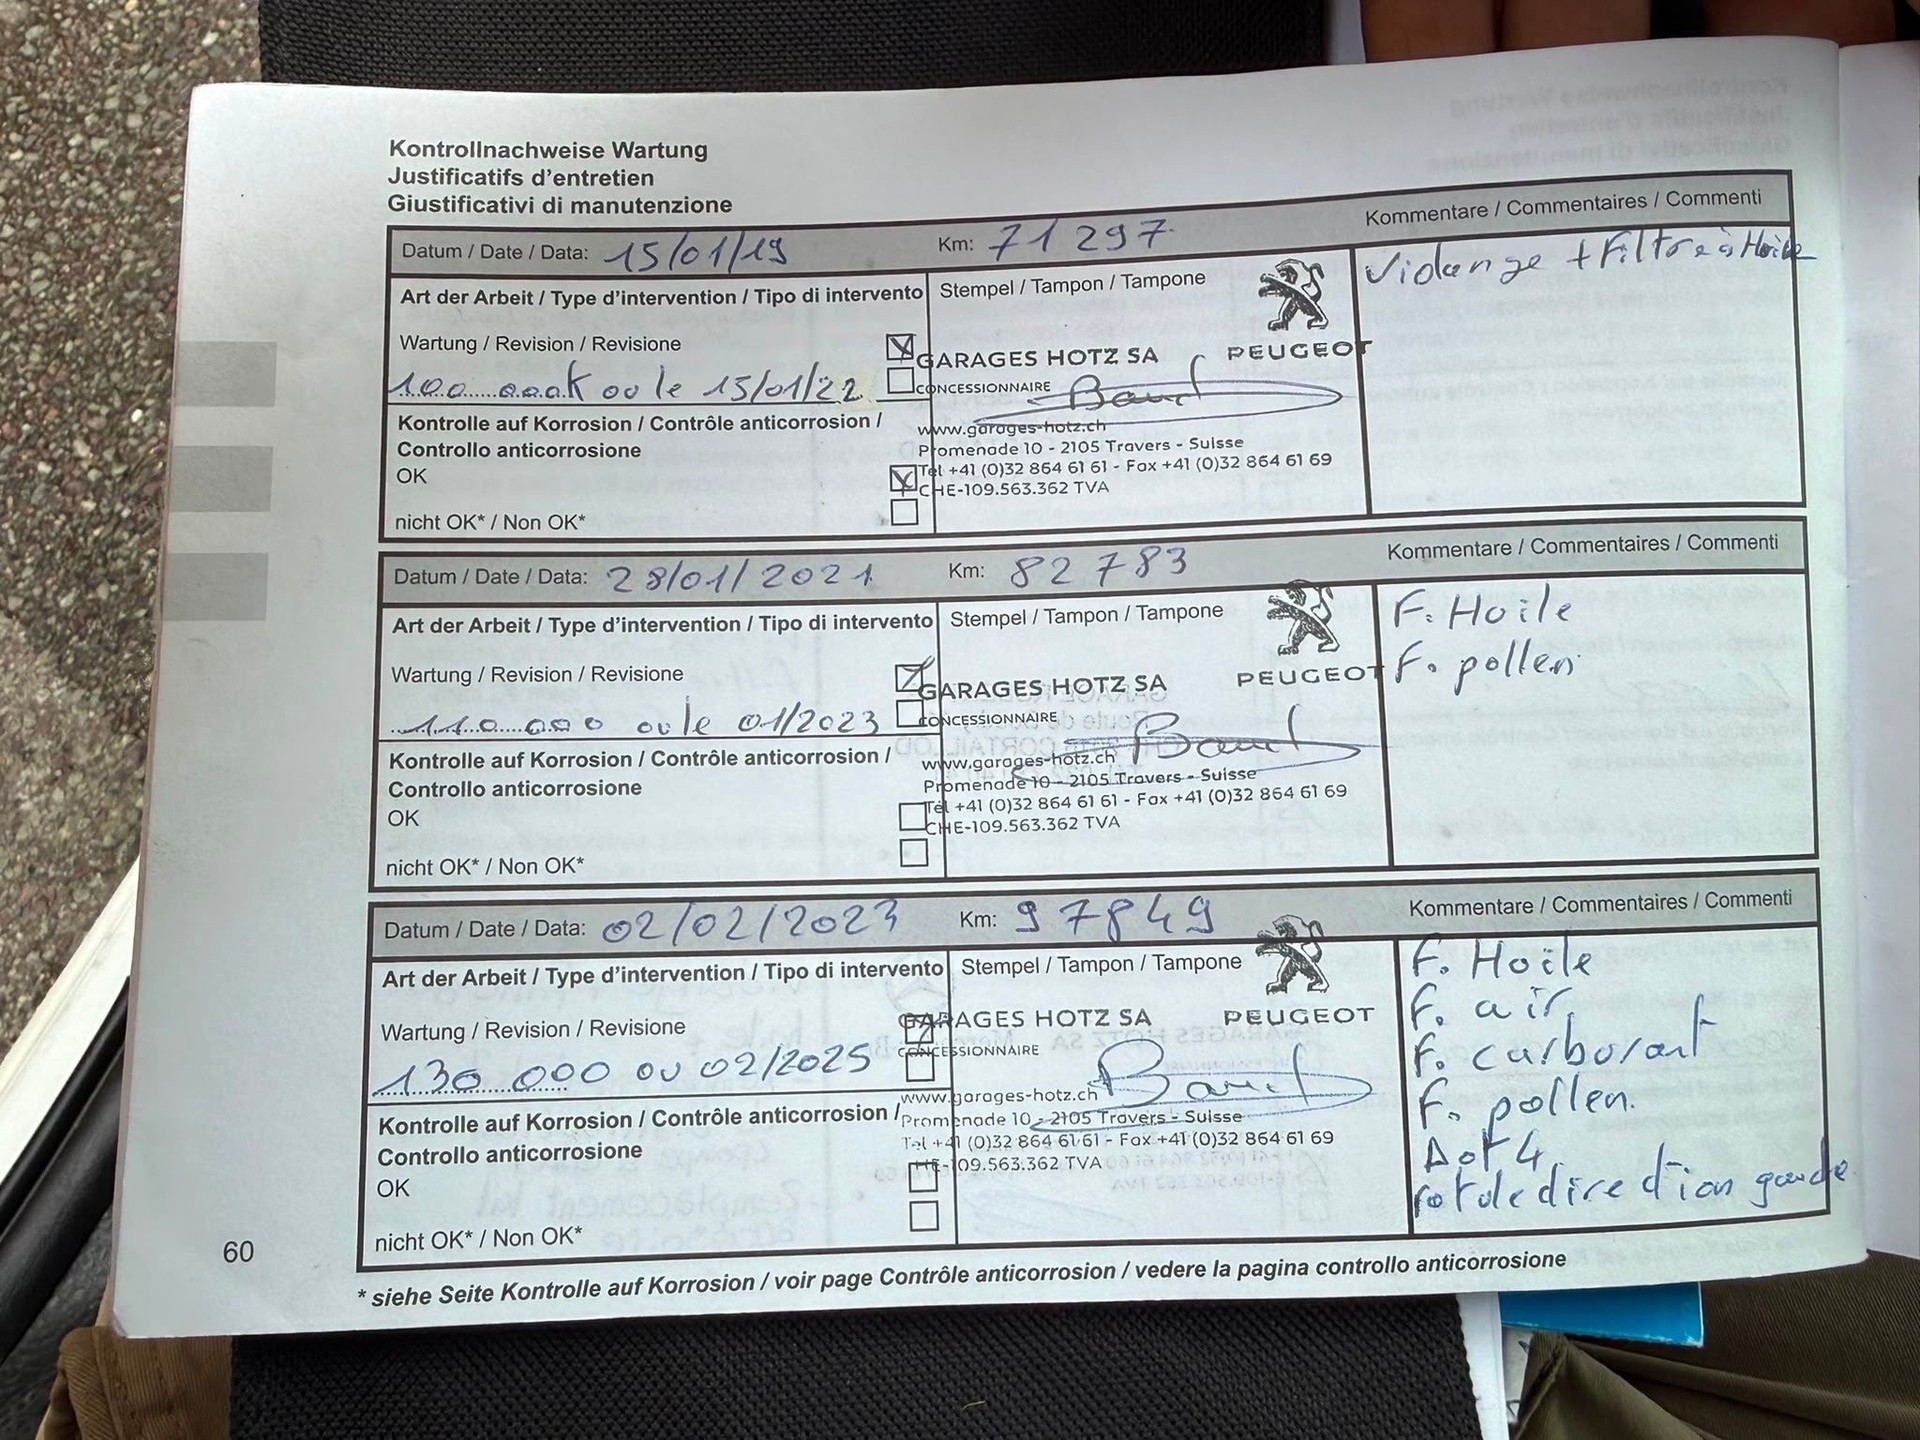 Kontrollnachweise Wartung
Justificatifs d'entretien
Giustificativi di manutenzione
Datum / Date / Data: 15/01/19 Km: 71 297 Kommentare / Commentaires / Commenti
Art der Arbeit / Type d'intervention / Tipo di intervento Stempel / Tampon / Tampone Vidange + Filtre à Hoile
Wartung / Revision / Revisione
GARAGES HOTZ SA PEUGEOT
100 000K ou le 15/01/22 CONCESSIONNAIRE
Kontrolle auf Korrosion / Contrôle anticorrosion / www.garages-hotz.ch
Controllo anticorrosione Promenade 10 - 2105 Travers - Suisse
OK Tél +41 (0)32 864 61 61 - Fax +41 (0)32 864 61 69
CHE-109.563.362 TVA
nicht OK* / Non OK*
Datum / Date / Data: 28/01/2021 Km: 82 783 Kommentare / Commentaires / Commenti
Art der Arbeit / Type d'intervention / Tipo di intervento Stempel / Tampon / Tampone F. Hoile
Wartung / Revision / Revisione F. pollen
GARAGES HOTZ SA PEUGEOT
110 000 ou le 01/2023 CONCESSIONNAIRE
Kontrolle auf Korrosion / Contrôle anticorrosion / www.garages-hotz.ch
Controllo anticorrosione Promenade 10 - 2105 Travers - Suisse
OK Tél +41 (0)32 864 61 61 - Fax +41 (0)32 864 61 69
CHE-109.563.362 TVA
nicht OK* / Non OK*
Datum / Date / Data: 02/02/2023 Km: 97849 Kommentare / Commentaires / Commenti
Art der Arbeit / Type d'intervention / Tipo di intervento Stempel / Tampon / Tampone F. Hoile
Wartung / Revision / Revisione GARAGES HOTZ SA PEUGEOT F. air
130 000 ou 02/2025 CONCESSIONNAIRE F. carburant
Kontrolle auf Korrosion / Contrôle anticorrosion / www.garages-hotz.ch F. pollen.
Controllo anticorrosione Promenade 10 - 2105 Travers - Suisse Dot 4
OK Tél +41 (0)32 864 61 61 - Fax +41 (0)32 864 61 69 rotule direction gauche
CHE-109.563.362 TVA
nicht OK* / Non OK*
60
* siehe Seite Kontrolle auf Korrosion / voir page Contrôle anticorrosion / vedere la pagina controllo anticorrosione